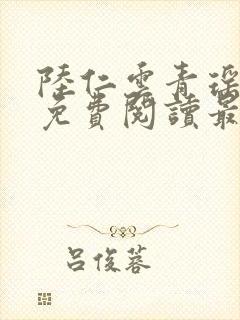 陸仁雲青瑤
免費閱讀最
呂俊蓉